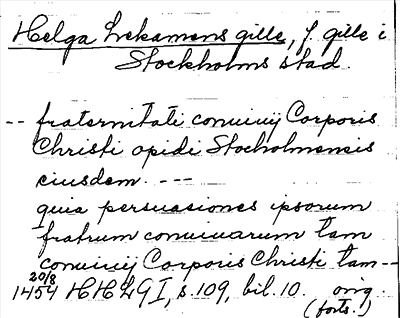 Helga Lekamens gille, f. gille i
Stockholms stad.
-- fraternitati conuiuij Corporis
Christi opidi Stocholmensis
eiusdem. ---
quia persuasiones ipsorum
fratrum conuiuarum tam
conuiuij Corporis Christi tam--
20/8
1454 HHLG I, s. 109, bil. 10. orig.
(forts.)